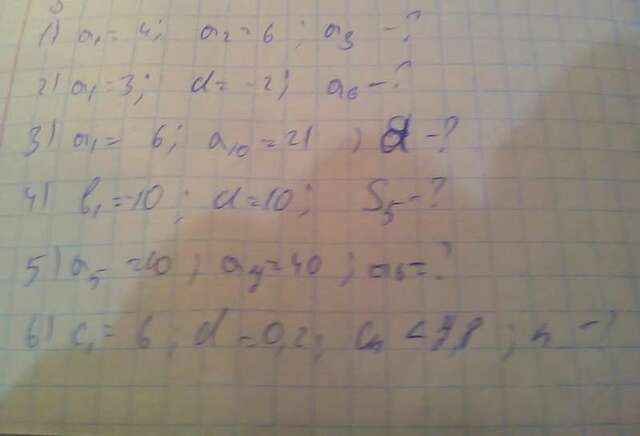 1) a₁ = 4; a₂ = 6; a₃ - ?
2) a₁ = 3; d = -2; a₆ - ?
3) a₁ = 6; a₁₀ = 21; d - ?
4) b₁ = -10; d = 10; S₅ - ?
5) a₅ = ; = 40; = ?
6) c₁ = 6; d = 0,2; cₙ < ; n - ?